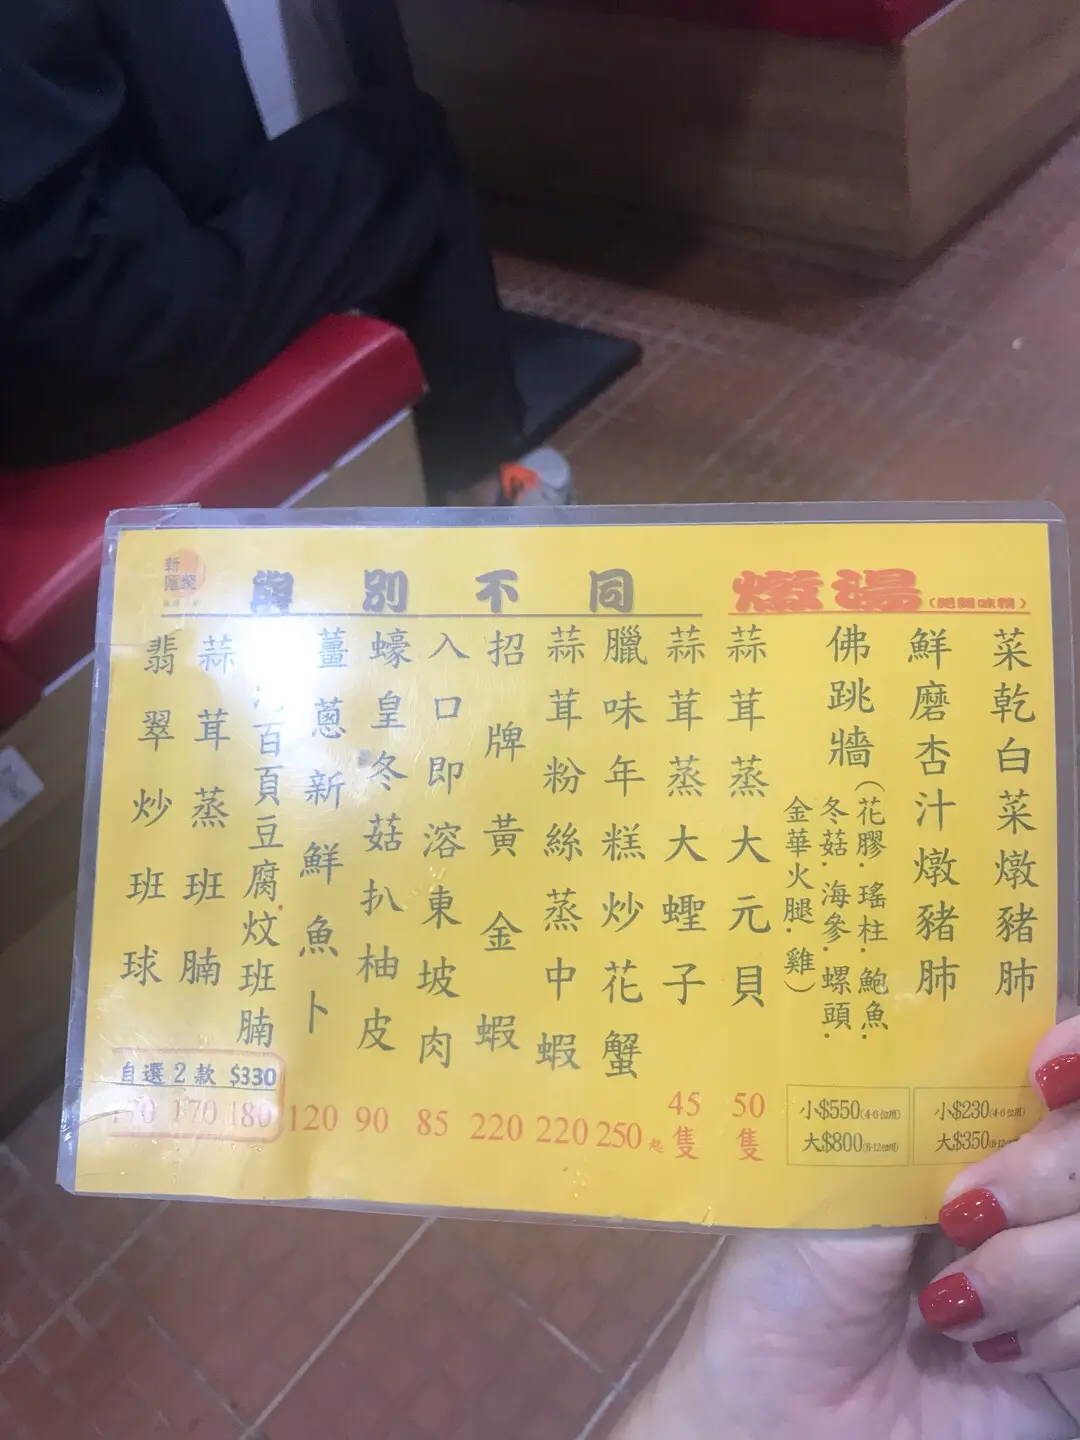 新
匯樂
與別不同
燉湯(絕對味精)
菜乾白菜燉豬肺
鮮磨杏汁燉豬肺
小$230(4-6位用)
大$350
佛跳牆(花膠·瑤柱·鮑魚·
冬菇·海參·螺頭·
金華火腿·雞)
小$550(4-6位用)
大$800(8-12位用)
蒜茸蒸大元貝
50隻
蒜茸蒸大蟶子
45隻
臘味年糕炒花蟹
250起
蒜茸粉絲蒸中蝦
220
招牌黃金蝦
220
入口即溶東坡肉
85
蠔皇冬菇扒柚皮
90
薑蔥新鮮魚卜
120
百頁豆腐·炆班腩
180
蒜茸蒸班腩
170
翡翠炒班球
170
自選2款 $330